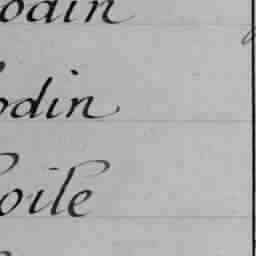 odin
odin
oile